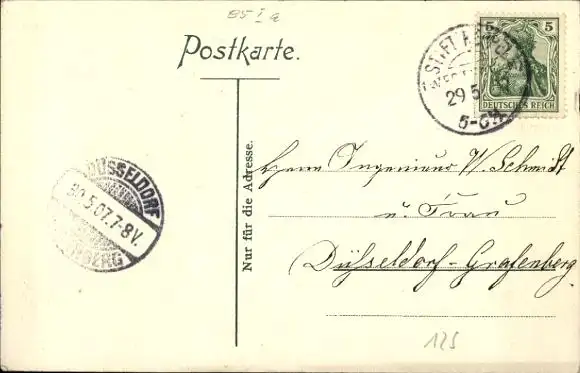 85 I a
Postkarte.
5 5
DEUTSCHES REICH
29 5
5-6N
DÜSSELDORF
30.5.07.7-8V.
Nur für die Adresse.
Herrn Ingenieur W. Schmidt
u. Frau
Düsseldorf-Grafenberg
125